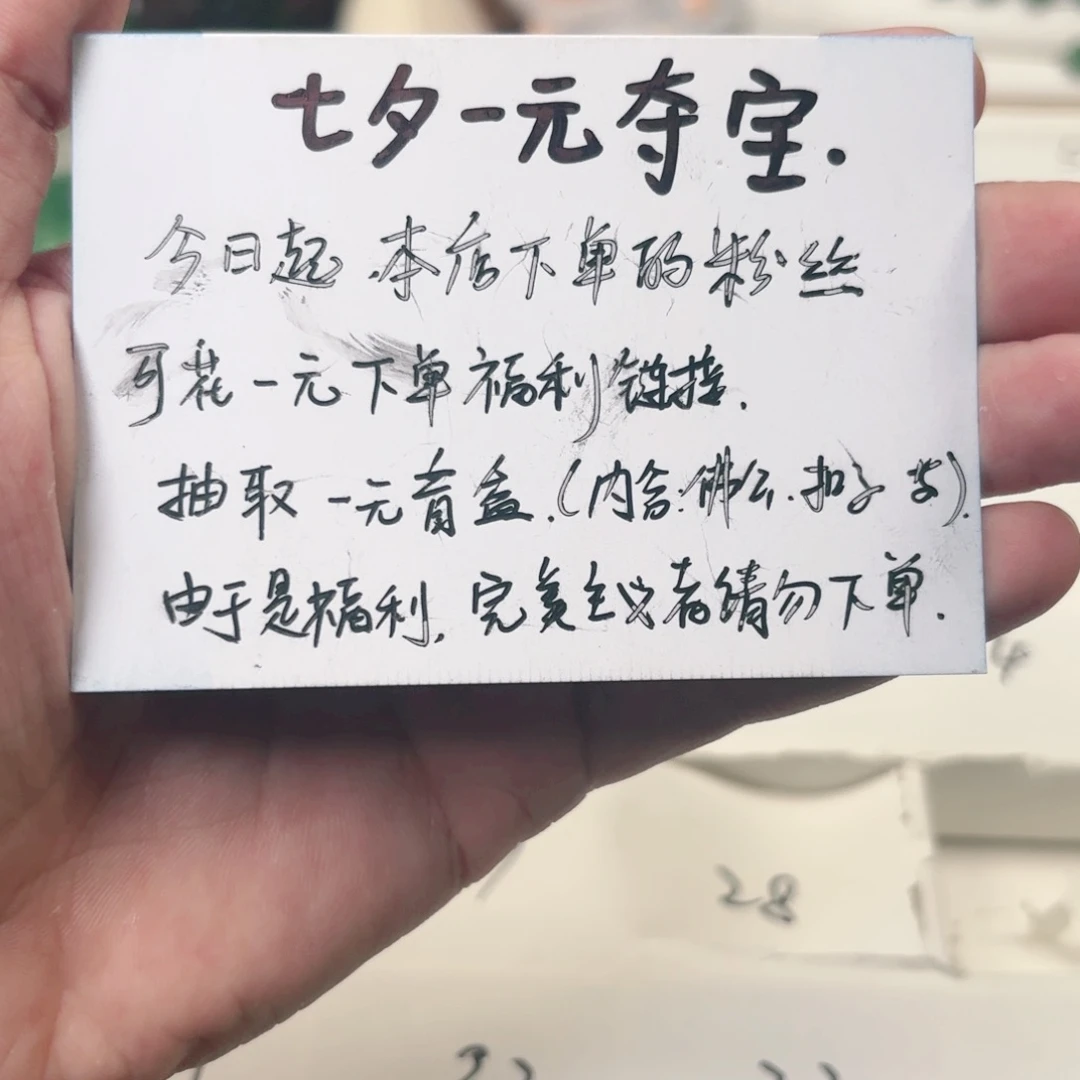 七夕一元夺宝.
今日起.本店下单的粉丝
可花一元下单福利链接.
抽取一元盲盒.(内含:佛公.扣子等).
由于是福利,完美主义者请勿下单.
28